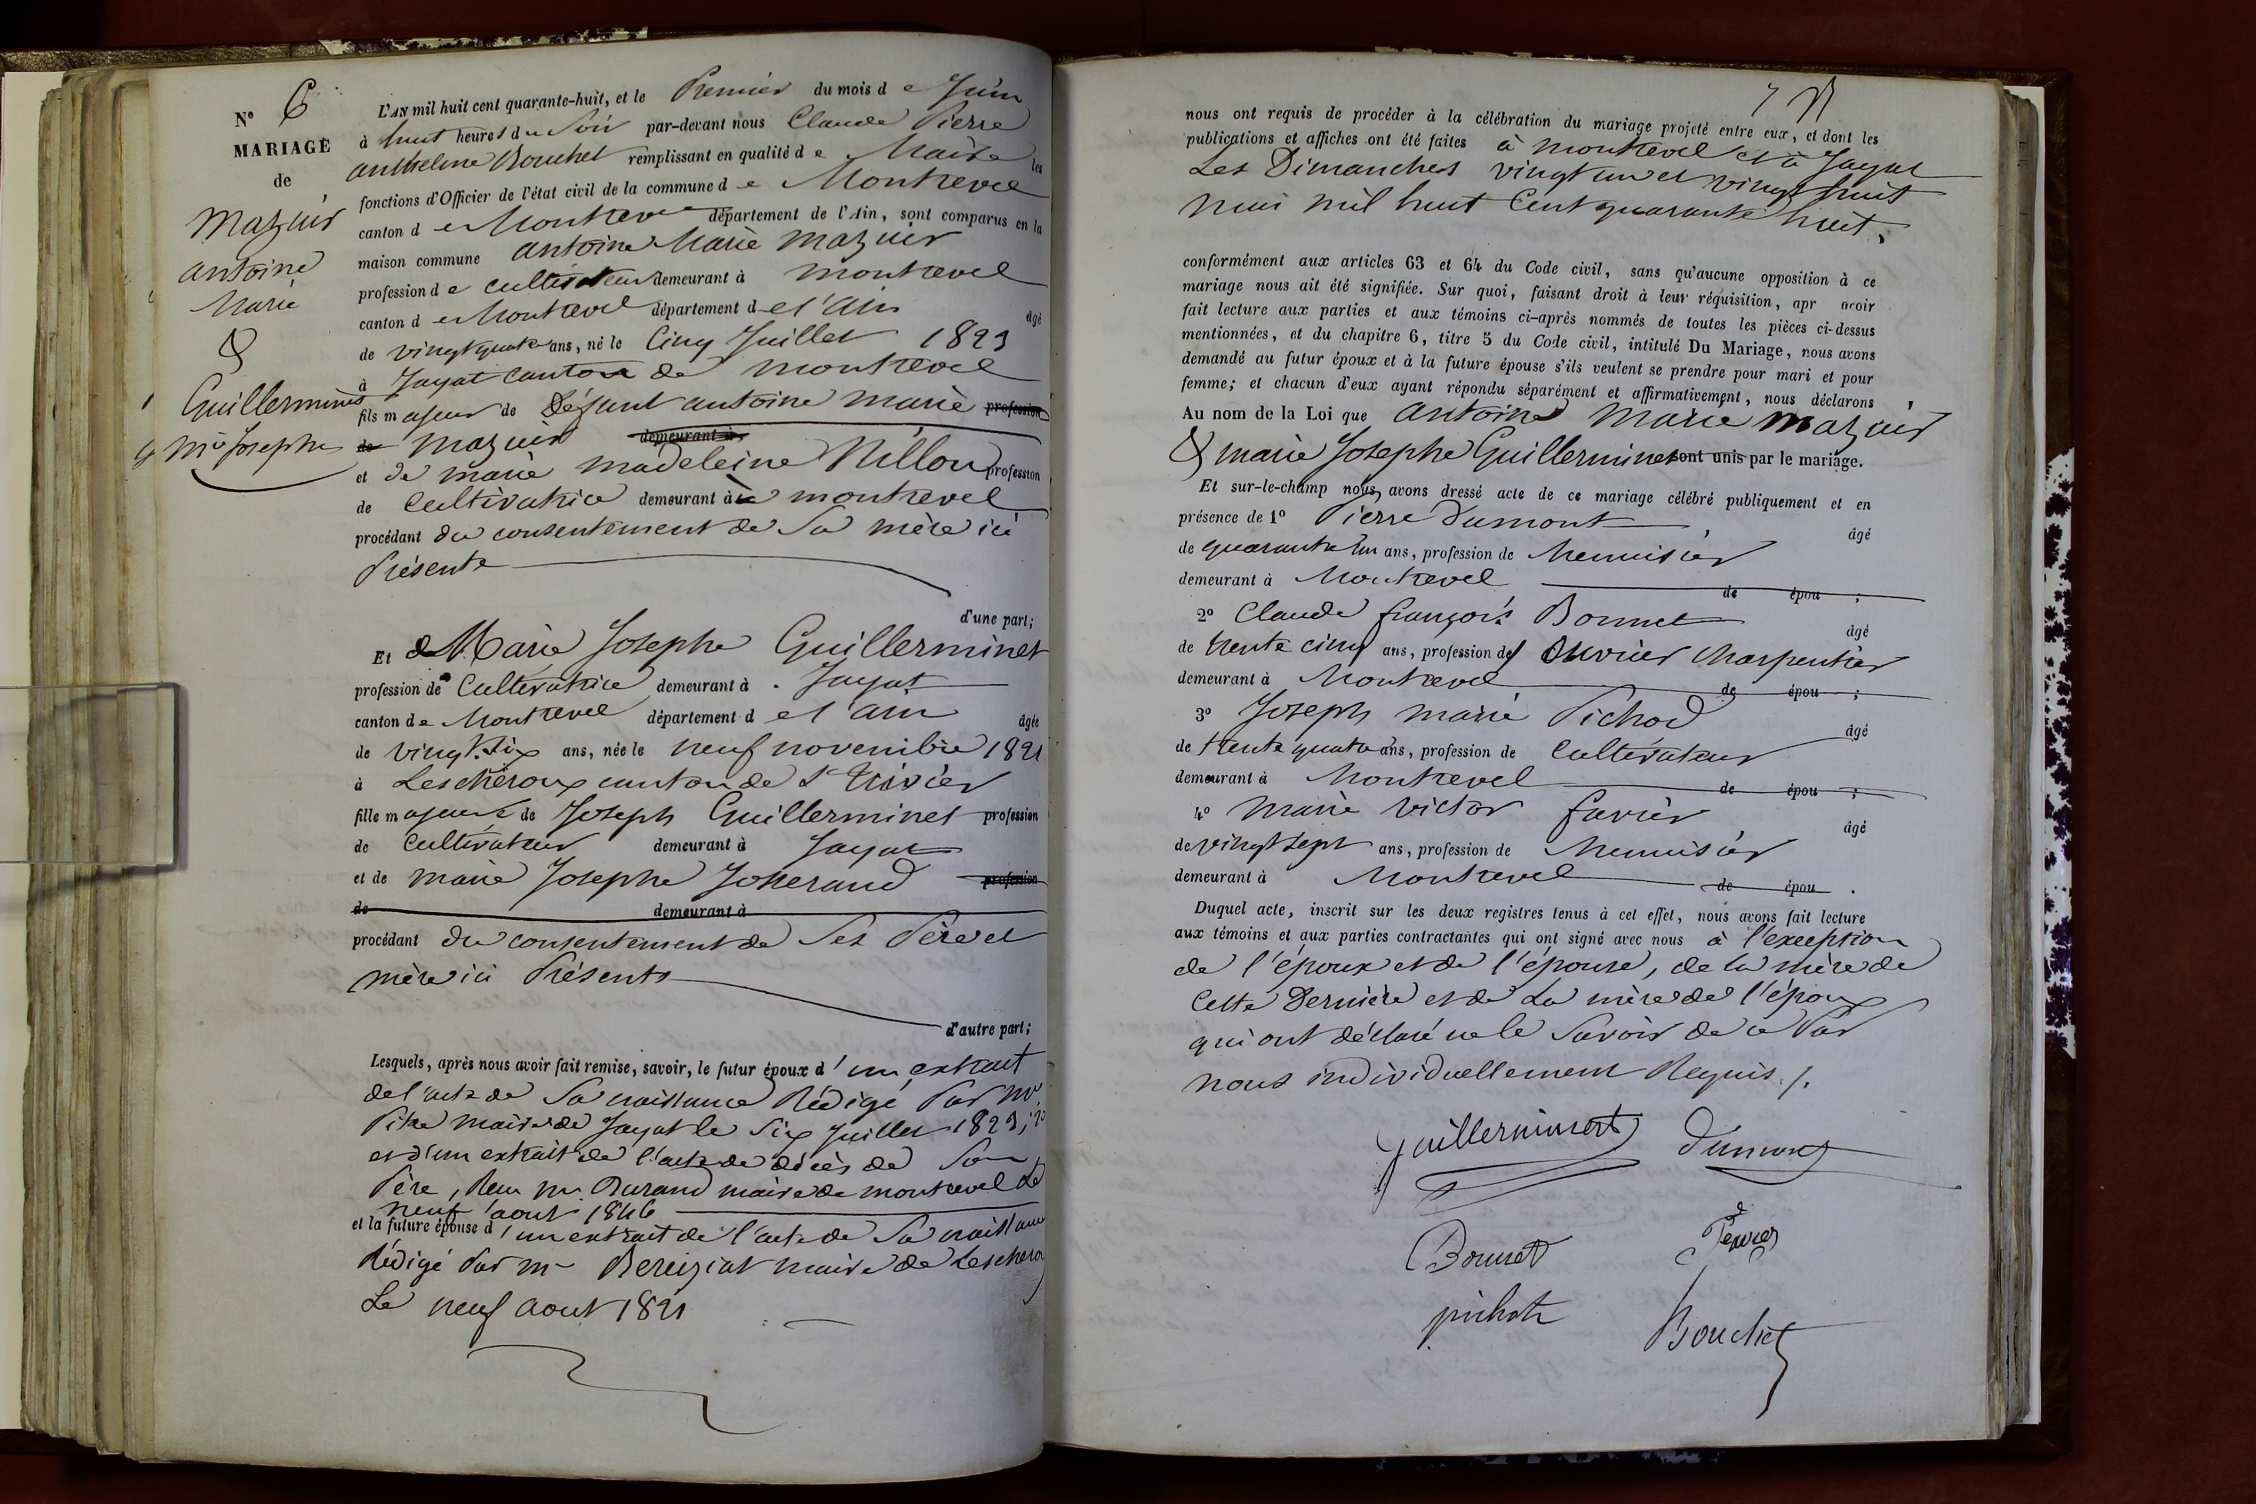 N° 6
MARIAGE
de
Mazuir
antoine
Marie
&
Guillerminet
Mie Josephe
L'AN mil huit cent quarante-huit, et le Premier du mois de Juin
à huit heures du Soir par-devant nous Claude Pierre
anthelme Bouchet remplissant en qualité de Maire les
fonctions d'Officier de l'état civil de la commune de Montrevel
canton de Montrevel département de l'Ain, sont comparus en la
maison commune antoine Marie Mazuir
profession de cultivateur demeurant à Montrevel
canton de Montrevel département de l'ain âgé
de vingt quatre ans, né le Cinq Juillet 1823
à Jayat canton de montrevel
fils majeur de Défunt antoine marie profession
de mazuir demeurant à
et de marie madeleine Nillon profession
de Cultivatrice demeurant à montrevel
procédant du consentement de Sa mère ici
Présente
d'une part;
Et Marie Josephe Guillerminet
profession de Cultivatrice demeurant à Jayat
canton de Montrevel département de l'ain âgée
de vingt six ans, née le neuf novembre 1821
à Lescheroux canton de St Trivier
fille majeure de Joseph Guillerminet profession
de Cultivateur demeurant à Jayat
et de marie Josephe Josserand profession
de demeurant à
procédant du consentement de Ses Père et
mère ici Présents
d'autre part;
Lesquels, après nous avoir fait remise, savoir, le futur époux d'un extrait
de l'acte de Sa naissance Rédigé Par Mr
maire de Jayat le Six Juillet 1823,
et d'un extrait de l'acte de décès de Son
Père, Reçu mr Durand maire de montrevel Le
neuf aout 1846
et la future épouse d'un extrait de l'acte de Sa naissance
Rédigé Par mr Bereiziat maire de Leschero
Le neuf aout 1821
7
nous ont requis de procéder à la célébration du mariage projeté entre eux, et dont les
publications et affiches ont été faites à montrevel et à Jayat
Les Dimanches vingt un et vingt huit
mai mil huit Cent quarante huit,
conformément aux articles 63 et 64 du Code civil, sans qu'aucune opposition à ce
mariage nous ait été signifiée. Sur quoi, faisant droit à leur réquisition, apr avoir
fait lecture aux parties et aux témoins ci-après nommés de toutes les pièces ci-dessus
mentionnées, et du chapitre 6, titre 5 du Code civil, intitulé Du Mariage, nous avons
demandé au futur époux et à la future épouse s'ils veulent se prendre pour mari et pour
femme; et chacun d'eux ayant répondu séparément et affirmativement, nous déclarons
Au nom de la Loi que antoine Marie mazuir
& marie Josephe Guillerminet sont unis par le mariage.
Et sur-le-champ nous avons dressé acte de ce mariage célébré publiquement et en
présence de 1° Pierre Dumont âgé
de quarante un ans, profession de Menuisier
demeurant à Montrevel de épou ;
2° Claude françois Bonnet âgé
de trente cinq ans, profession de Ouvrier charpentier
demeurant à Montrevel de épou ;
3° Joseph marie Pichod âgé
de trente quatre ans, profession de Cultivateur
demeurant à Montrevel de épou ;
4° Marie Victor favier âgé
de vingt sept ans, profession de Menuisier
demeurant à Montrevel de épou .
Duquel acte, inscrit sur les deux registres tenus à cet effet, nous avons fait lecture
aux témoins et aux parties contractantes qui ont signé avec nous à l'exception
de l'époux et de l'épouse, de la mère de
Cette Dernière et de La mère de l'époux
qui ont déclaré ne le Savoir de ce Par
nous individuellement Requis ./.
guillerminert Dumont
Bonnet
pichot Bouchet